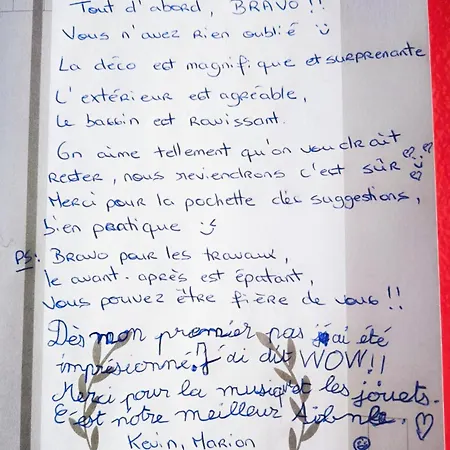 Tout d'abord, BRAVO !!
Vous n'avez rien oublié
La déco est magnifique et surprenante
L'extérieur est agréable,
le bassin est ravissant.
On aime tellement qu'on voudrait
rester, nous reviendrons c'est sûr
Merci pour la pochette des suggestions,
bien pratique
PS: Bravo pour les travaux,
le avant-après est épatant,
vous pouvez être fière de vous !!
Dès mon premier pas j'ai été
impresionné. J'ai dit WOW!!
Merci pour la musique et les jouets.
C'est notre meilleur Airbnb.
Kevin, Marion